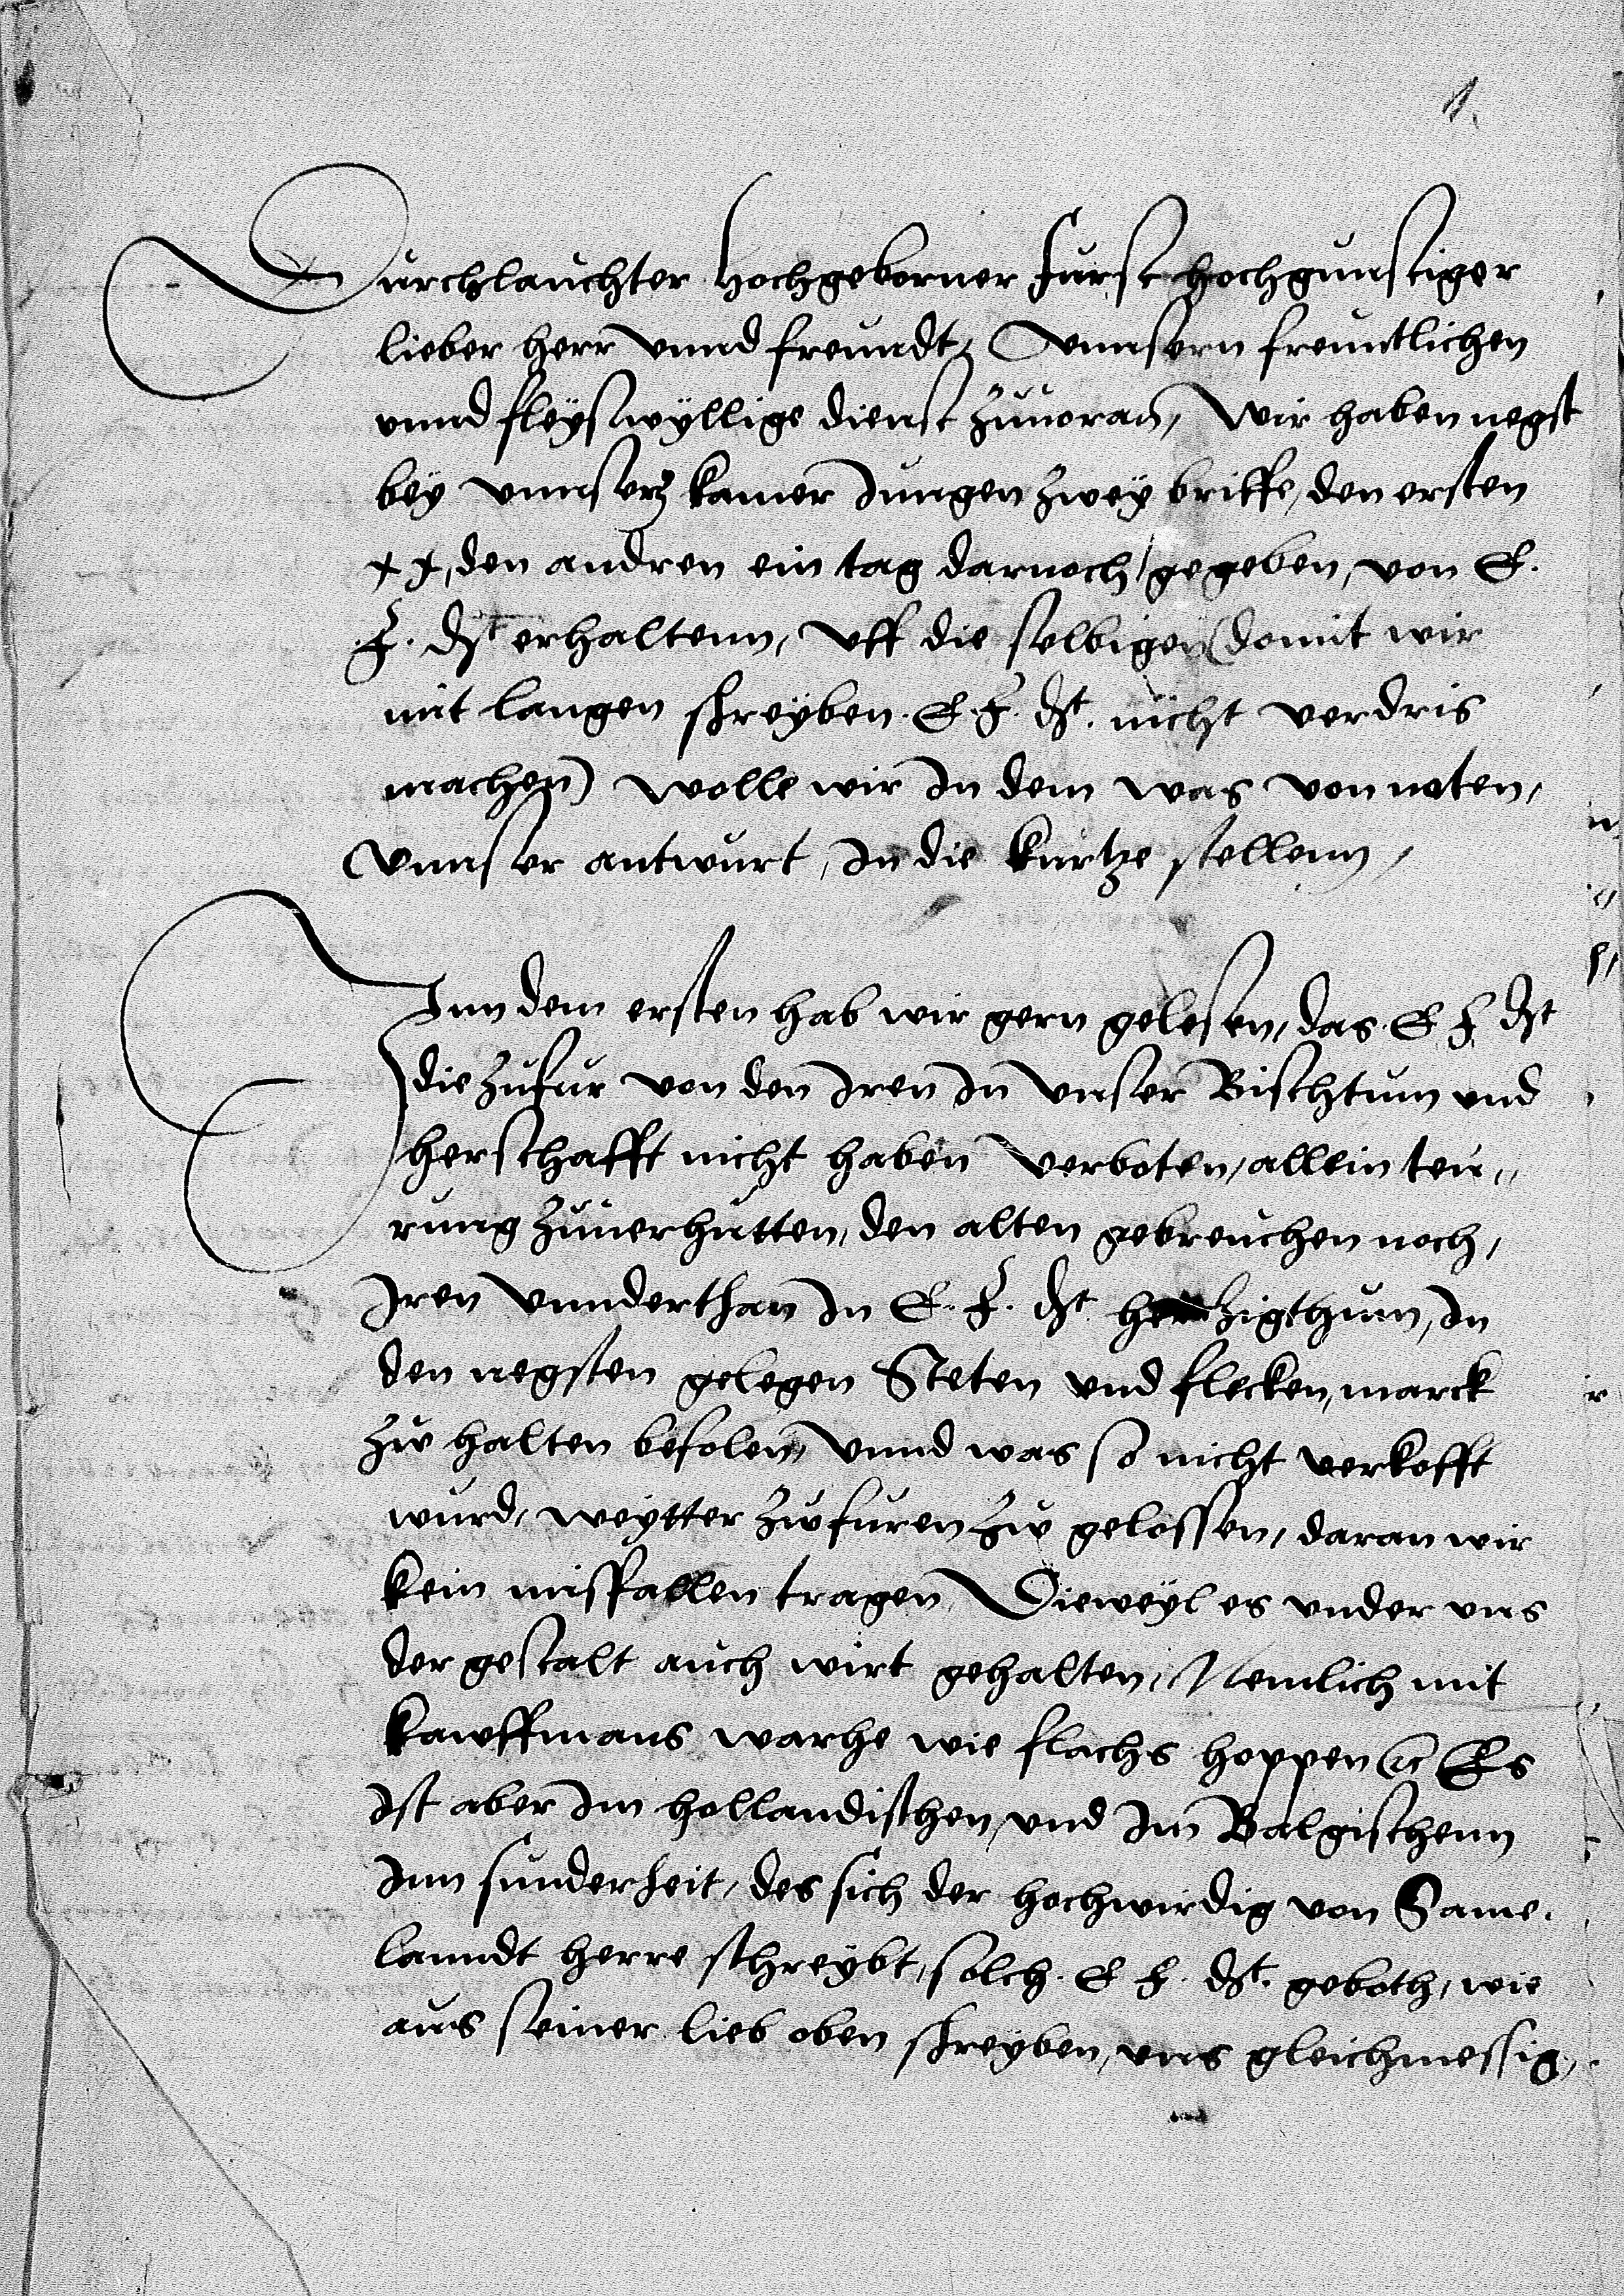 1.
Durchlauchter hochgeborner furst hochgunstiger
lieber herr vnnd freundt, Vnnsern freuntlichen
vnnd fleyswyllige dienst zuuoran, Wir haben negst
bey vnnserm kamer Jungen zwey briffe, den ersten
xx, den andren ein tag darnoch gegeben, von E.
F. dt erhaltenn, Vff die selbigen (domit wir
mit langen shreyben. E. F. dt. nicht verdris
machen) wolle wir In dem was von noten,
Vnnser antwurt, In die kurtze stellenn,
Inn dem ersten hab wir gern gelesen, das. E F dt
die zufur von den Iren In vnser Bischtum vnd
herschafft nicht haben verboten, allein teu,,
rung zuuerhutten, den alten gebreuchen noch,
Iren Vnnderthan In E. F. dt hertzigthum, In
den negsten gelegen Steten vnd flecken, marck
zw halten befolen, Vnnd was so nicht verkofft
wurd, weytter zw furen zw gelossen, daran wir
kein misfallen tragen, Dieweyl es vnder vns
der gestalt auch wirt gehalten, Nemlich mit
kawffmans warhe wie flachs hoppen etc Es
Ist aber Im hollandischen, vnd Im Balgischenn
Inn sunderheit, des sich der hochwirdig von Same,
lanndt herre schreybt, solch. E F. dt. geboth, wie
aus seiner lieb oben shreyben, vns gleichmessig,